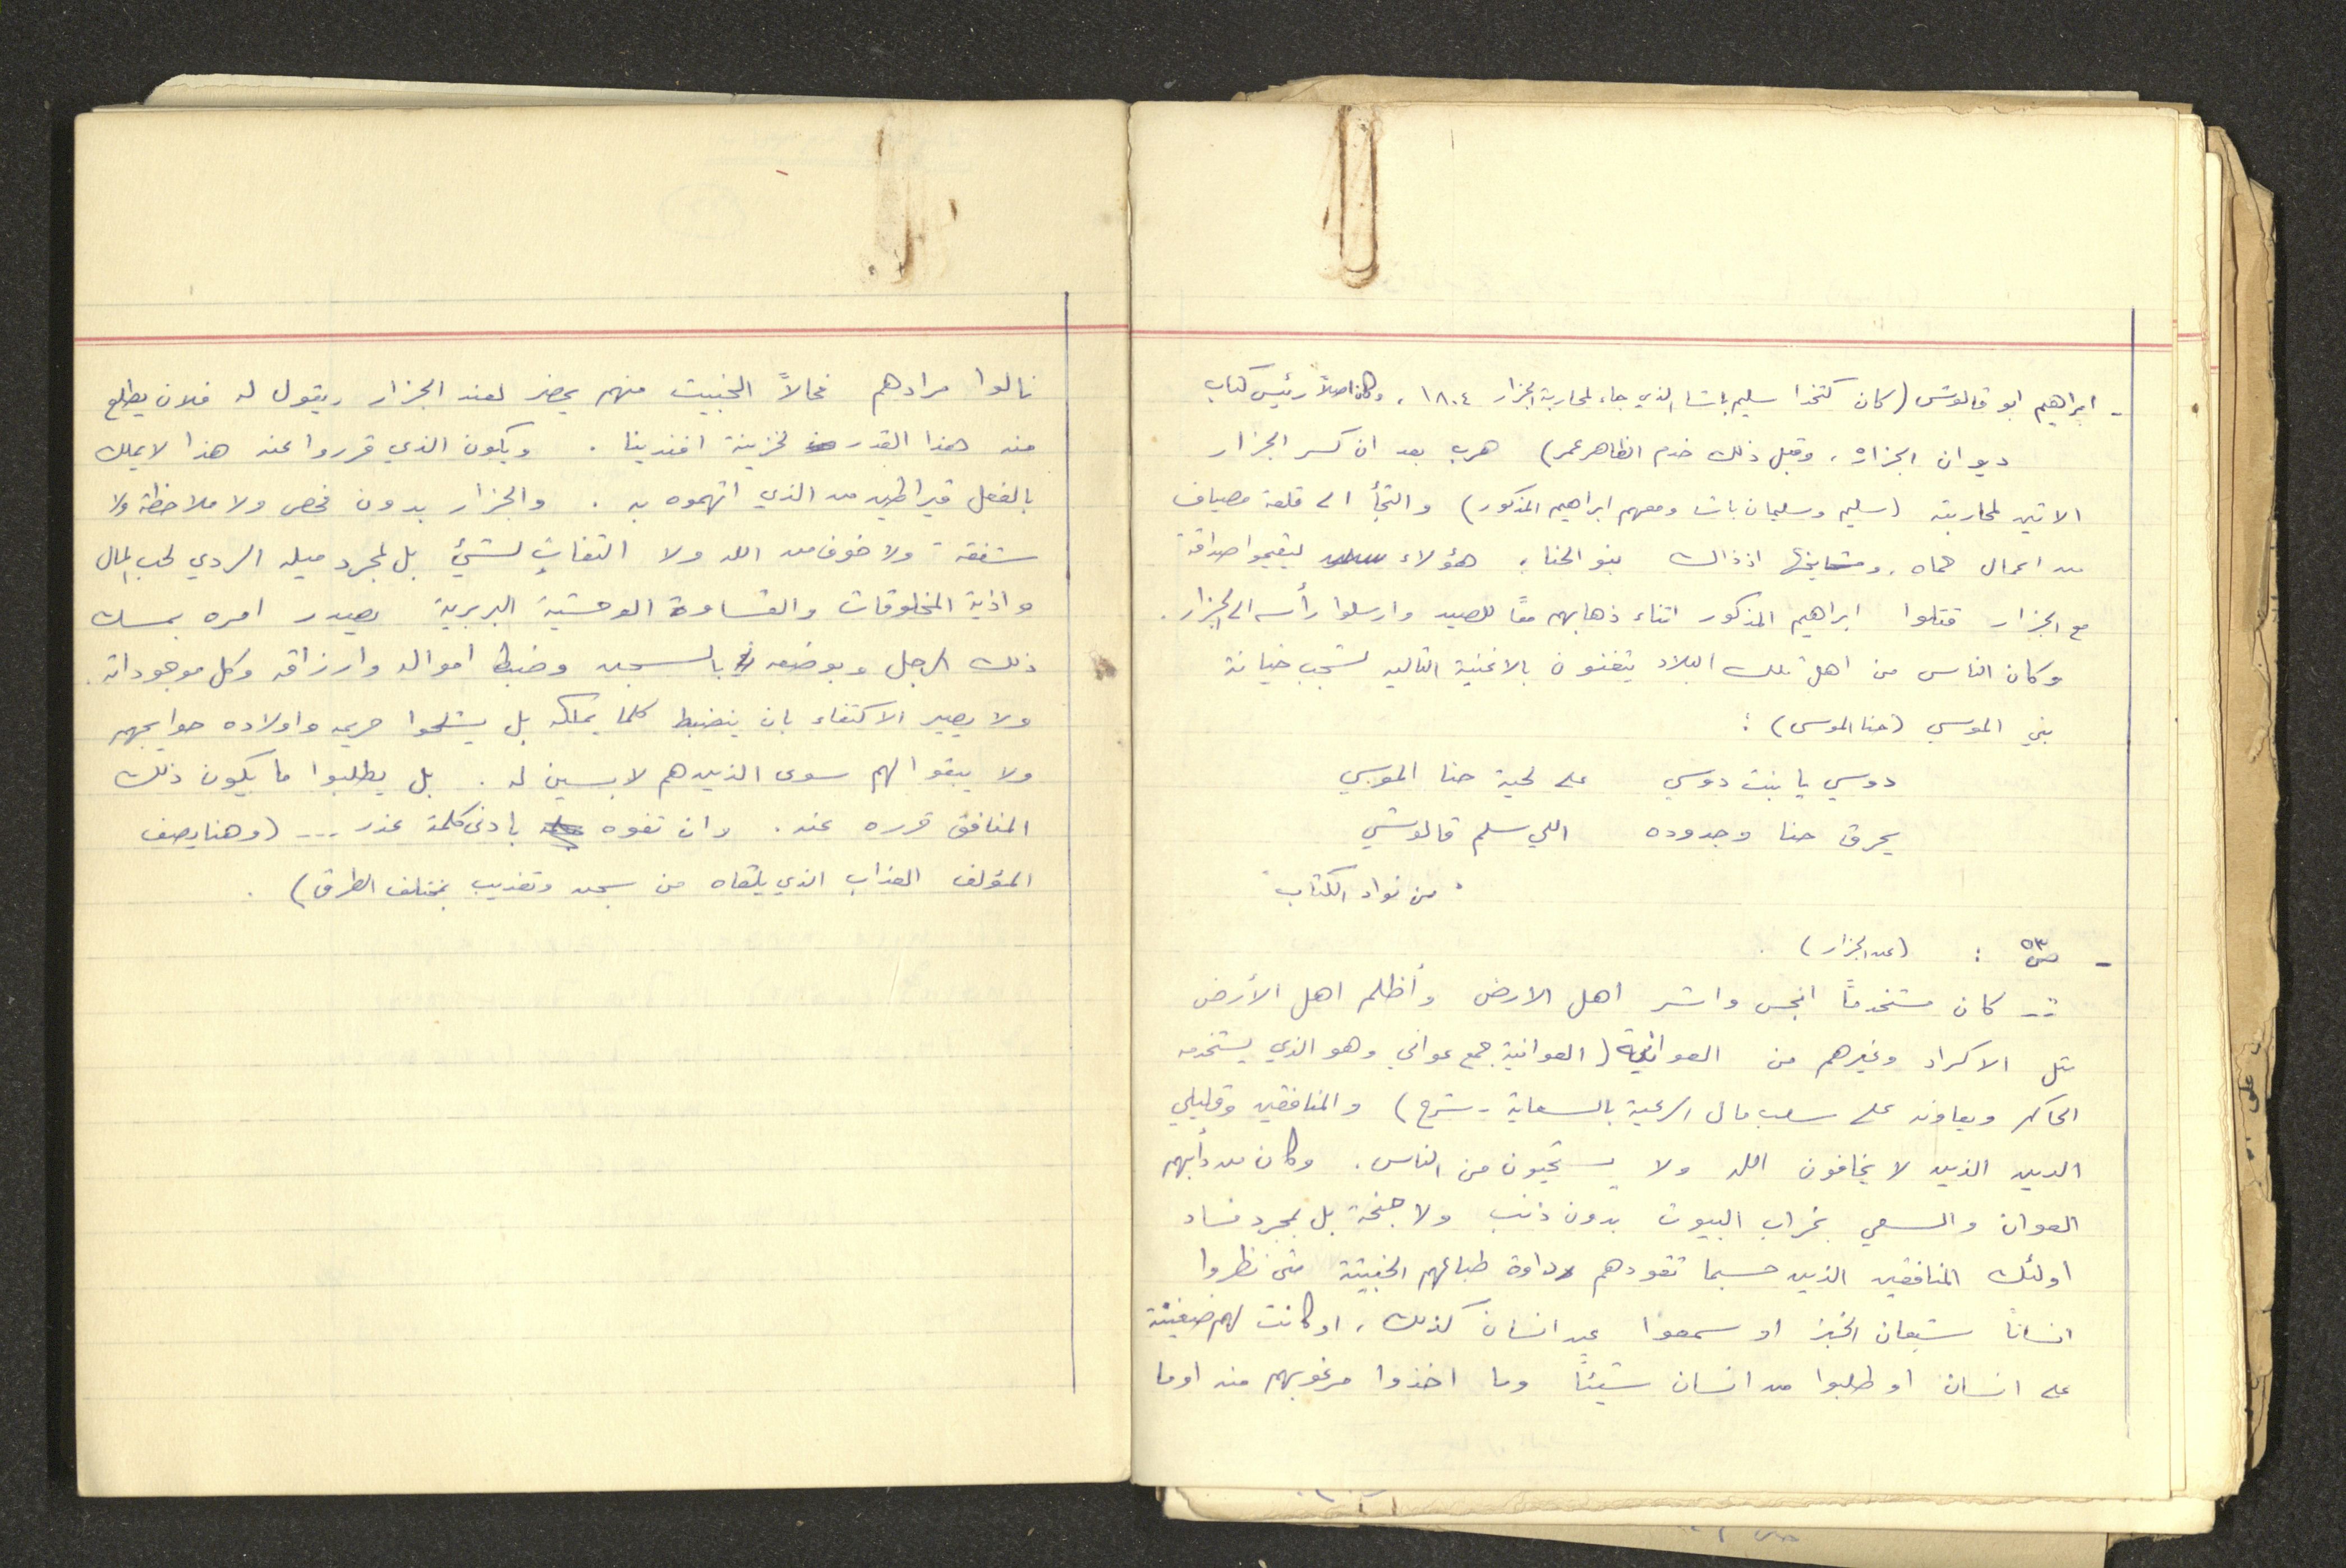 - ابراهيم ابو قالوش (كان كتخدا سليم باشا الذي جاء لمحاربة الجزار ١٨٠٤، وكان اصلاً رئيس كتاب
ديوان الجزار، وقبل ذلك خدم الظاهر عمر) هرب بعد ان كسر الجزار
الاتين لمحاربته (سليم وسليمان باشا ومعهم ابراهيم المذكور) والتجأ الى قلعة مصياف
من اعمال حماه. ومشايخها اذ ذاك بنو الحنا، هؤلاء ليقيموا صداقة
مع الجزار قتلوا ابراهيم المذكور اثناء ذهابهم معاً للصيد وارسلوا رأسه الى الجزار.
وكان الناس من اهل تلك البلاد يتغنون بالاغنية التاليه لشجب خيانة
بني الموسي (حنا الموسى):
دوسي يا بنت دوسي على لحية حنا الموسي
يحرق حنا وجدوده اللي سلم قالوشي
"من نواد الكتاب"
- ص ٥٣ : (عن الجزار)
.. كان مستخدماً انجس واشر اهل الارض وأظلم اهل الأرض
مثل الاكراد وغيرهم من العوانية (العوانية جمع عواني وهو الذي يستخدمه
الحاكم ويعاونه على سلب مال الرعية بالسعاية - شرح) والمنافقين وقليلي
الدين الذين لا يخافون الله ولا يستحيون من الناس. وكان من دأبهم
العوان والسعي بخراب البيوت بدون ذنب ولا جنحة بل بمجرد فساد
اولئك المنافقين الذين حسبما تقودهم رداوة طباعهم الخبيثة متى نظروا
انساناً شبعان الخبز او سمعوا عن انسان كذلك، او كانت لهم ضغينة
على انسان او طلبوا من انسان شيئاً وما اخذوا مرغوبهم منه او ما
نالوا مرادهم فحالاً الخبيث منهم يحضر لعند الجزار ويقول له فلان يطلع
منه هذا القدر لخزينة افندينا . ويكون الذي قرروا عنه هذا لا يملك
بالفعل قيراطين من الذي اتهموه به . والجزار بدون فحص ولا ملاحظة ولا
شفقة ولا خوف من الله ولا التفات لشئ بل لمجرد ميله الردي لحب المال
واذية المخلوقات والقساوة الوحشية البربرية يصدر امره بمسك
ذلك الرجل وبوضعه بالسجن وضبط امواله وارزاقه وكل موجوداته.
ولا يصير الاكتفاء بان ينضبط كلما يملكه بل يشلحوا حريمه واولاده حوايجهم
ولا يبقوا لهم سوى الذين هم لابسين له . بل يطلبوا ما يكون ذلك
المنافق قرره عنه. وان تفوه بادنى كلمة عذر --- (وهنا يصف
المؤلف العذاب الذي يلقاه من سجن وتعذيب بمختلف الطرق) .